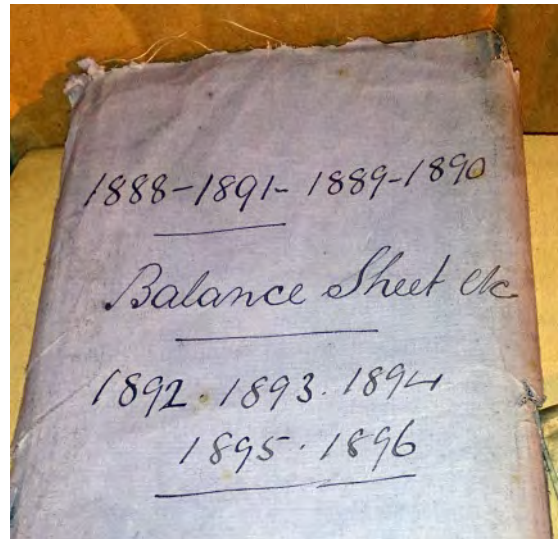 1888-1891- 1889-1890
Balance Sheet etc
1892. 1893. 1894
1895. 1896